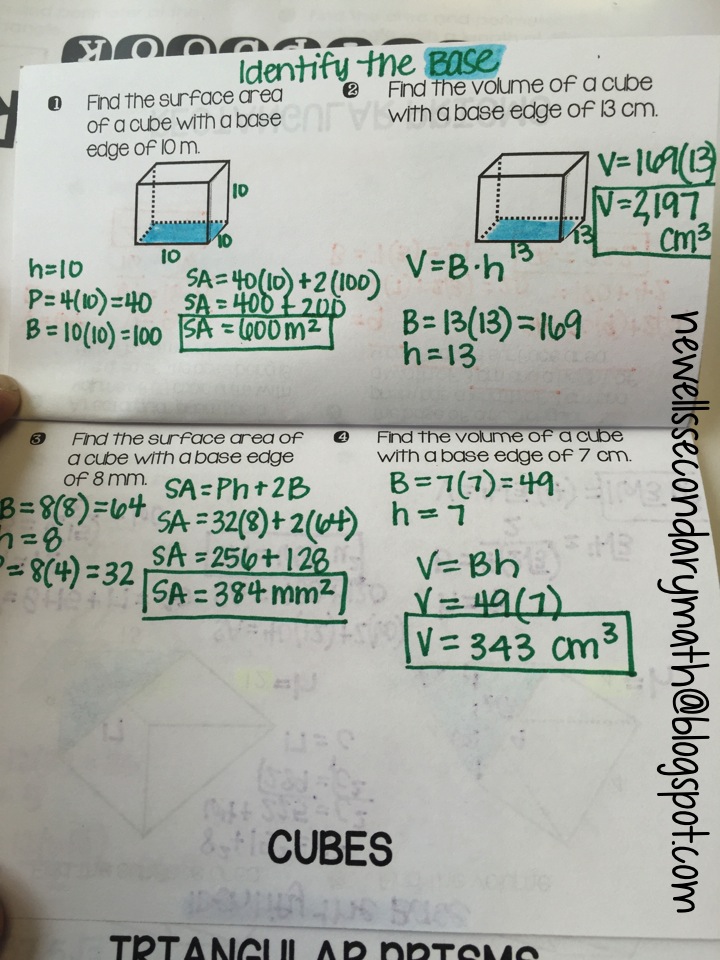 Identify the Base
1 Find the surface area
of a cube with a base
edge of 10 m.
10
10
10
h=10
P=4(10)=40
B=10(10)=100
SA=40(10)+2(100)
SA=400+200
SA=600m²
2 Find the volume of a cube
with a base edge of 13 cm.
13
13
V=B·h
B=13(13)=169
h=13
V=169(13)
V=2,197
cm³
3 Find the surface area of
a cube with a base edge
of 8 mm.
B=8(8)=64
h=8
=8(4)=32
SA=Ph+2B
SA=32(8)+2(64)
SA=256+128
SA=384mm²
4 Find the volume of a cube
with a base edge of 7 cm.
B=7(7)=49
h=7
V=Bh
V=49(7)
V=343 cm³
CUBES
TRIANGULAR PRISMS
newellssecondarymath@blogspot.com